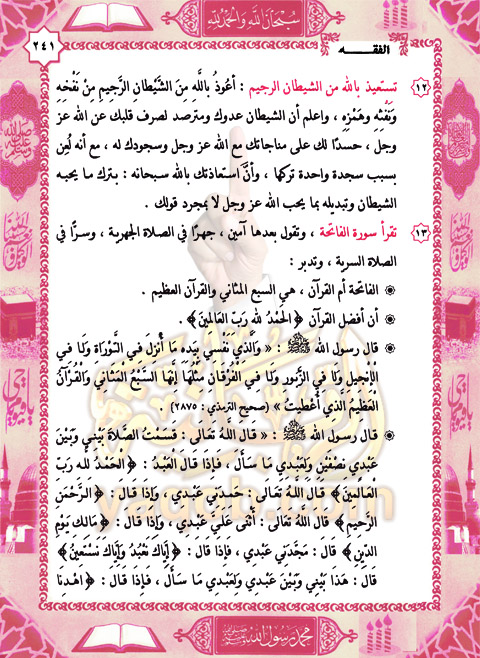 سبحان الله والحمد لله
٢٤١
الفقــه
١٢ تستعيذ بالله من الشيطان الرجيم : أعُوذُ بِاللَّهِ مِنَ الشَّيْطانِ الرَّجِيمِ مِنْ نَفْخِهِ
وَنَفْثِهِ وَهَمْزِهِ ، واعلم أن الشيطان عدوك ومترصد لصرف قلبك عن الله عز
وجل ، حسدًا لك على مناجاتك مع الله عز وجل وسجودك له ، مع أنه لُعِن
بسبب سجدة واحدة تركها ، وأنَّ استعاذتك بالله سبحانه : بترك ما يحبه
الشيطان وتبديله بما يحب الله عز وجل لا بمجرد قولك .
١٣ تقرأ سورة الفاتحة ، وتقول بعدها آمين ، جهرًا في الصلاة الجهرية ، وسرًا في
الصلاة السرية ، وتدبر :
الفاتحة أم القرآن ، هي السبع المثاني والقرآن العظيم .
أن أفضل القرآن ﴿الْحَمْدُ لله رَبِّ الْعَالَمِينَ﴾ .
قال رسول الله ﷺ : « وَالَّذِي نَفْسِي بِيَدِهِ مَا أُنْزِلَ فِي التَّوْرَاةِ وَلَا فِي
الْإِنْجِيلِ وَلَا فِي الزَّبُورِ وَلَا فِي الْفُرْقَانِ مِثْلُهَا إِنَّهَا السَّبْعُ الْمَثَانِي وَالْقُرْآنُ
الْعَظِيمُ الَّذِي أُعْطِيتُ » (صحيح الترمذي : ٢٨٧٥) .
قال رسول الله ﷺ : « قالَ اللَّهُ تَعَالَى : قَسَمْتُ الصَّلاةَ بَيْنِي وَبَيْنَ
عَبْدِي نِصْفَيْنِ وَلِعَبْدِي مَا سَأَلَ ، فَإِذَا قَالَ الْعَبْدُ : ﴿الْحَمْدُ لِلَّهِ رَبِّ
الْعَالَمِينَ﴾ قَالَ اللَّهُ تَعَالَى : حَمِدَنِي عَبْدِي ، وَإِذَا قَالَ : ﴿الرَّحْمَنِ
الرَّحِيمِ﴾ قَالَ اللَّهُ تَعَالَى : أَثْنَى عَلَيَّ عَبْدِي ، وَإِذَا قَالَ : ﴿مَالِكِ يَوْمِ
الدِّينِ﴾ قَالَ : مَجَّدَنِي عَبْدِي ، فَإِذَا قَالَ : ﴿إِيَّاكَ نَعْبُدُ وَإِيَّاكَ نَسْتَعِينُ﴾
قَالَ : هَذَا بَيْنِي وَبَيْنَ عَبْدِي وَلِعَبْدِي مَا سَأَلَ ، فَإِذَا قَالَ : ﴿اهْدِنَا
محمد رسول الله ﷺ